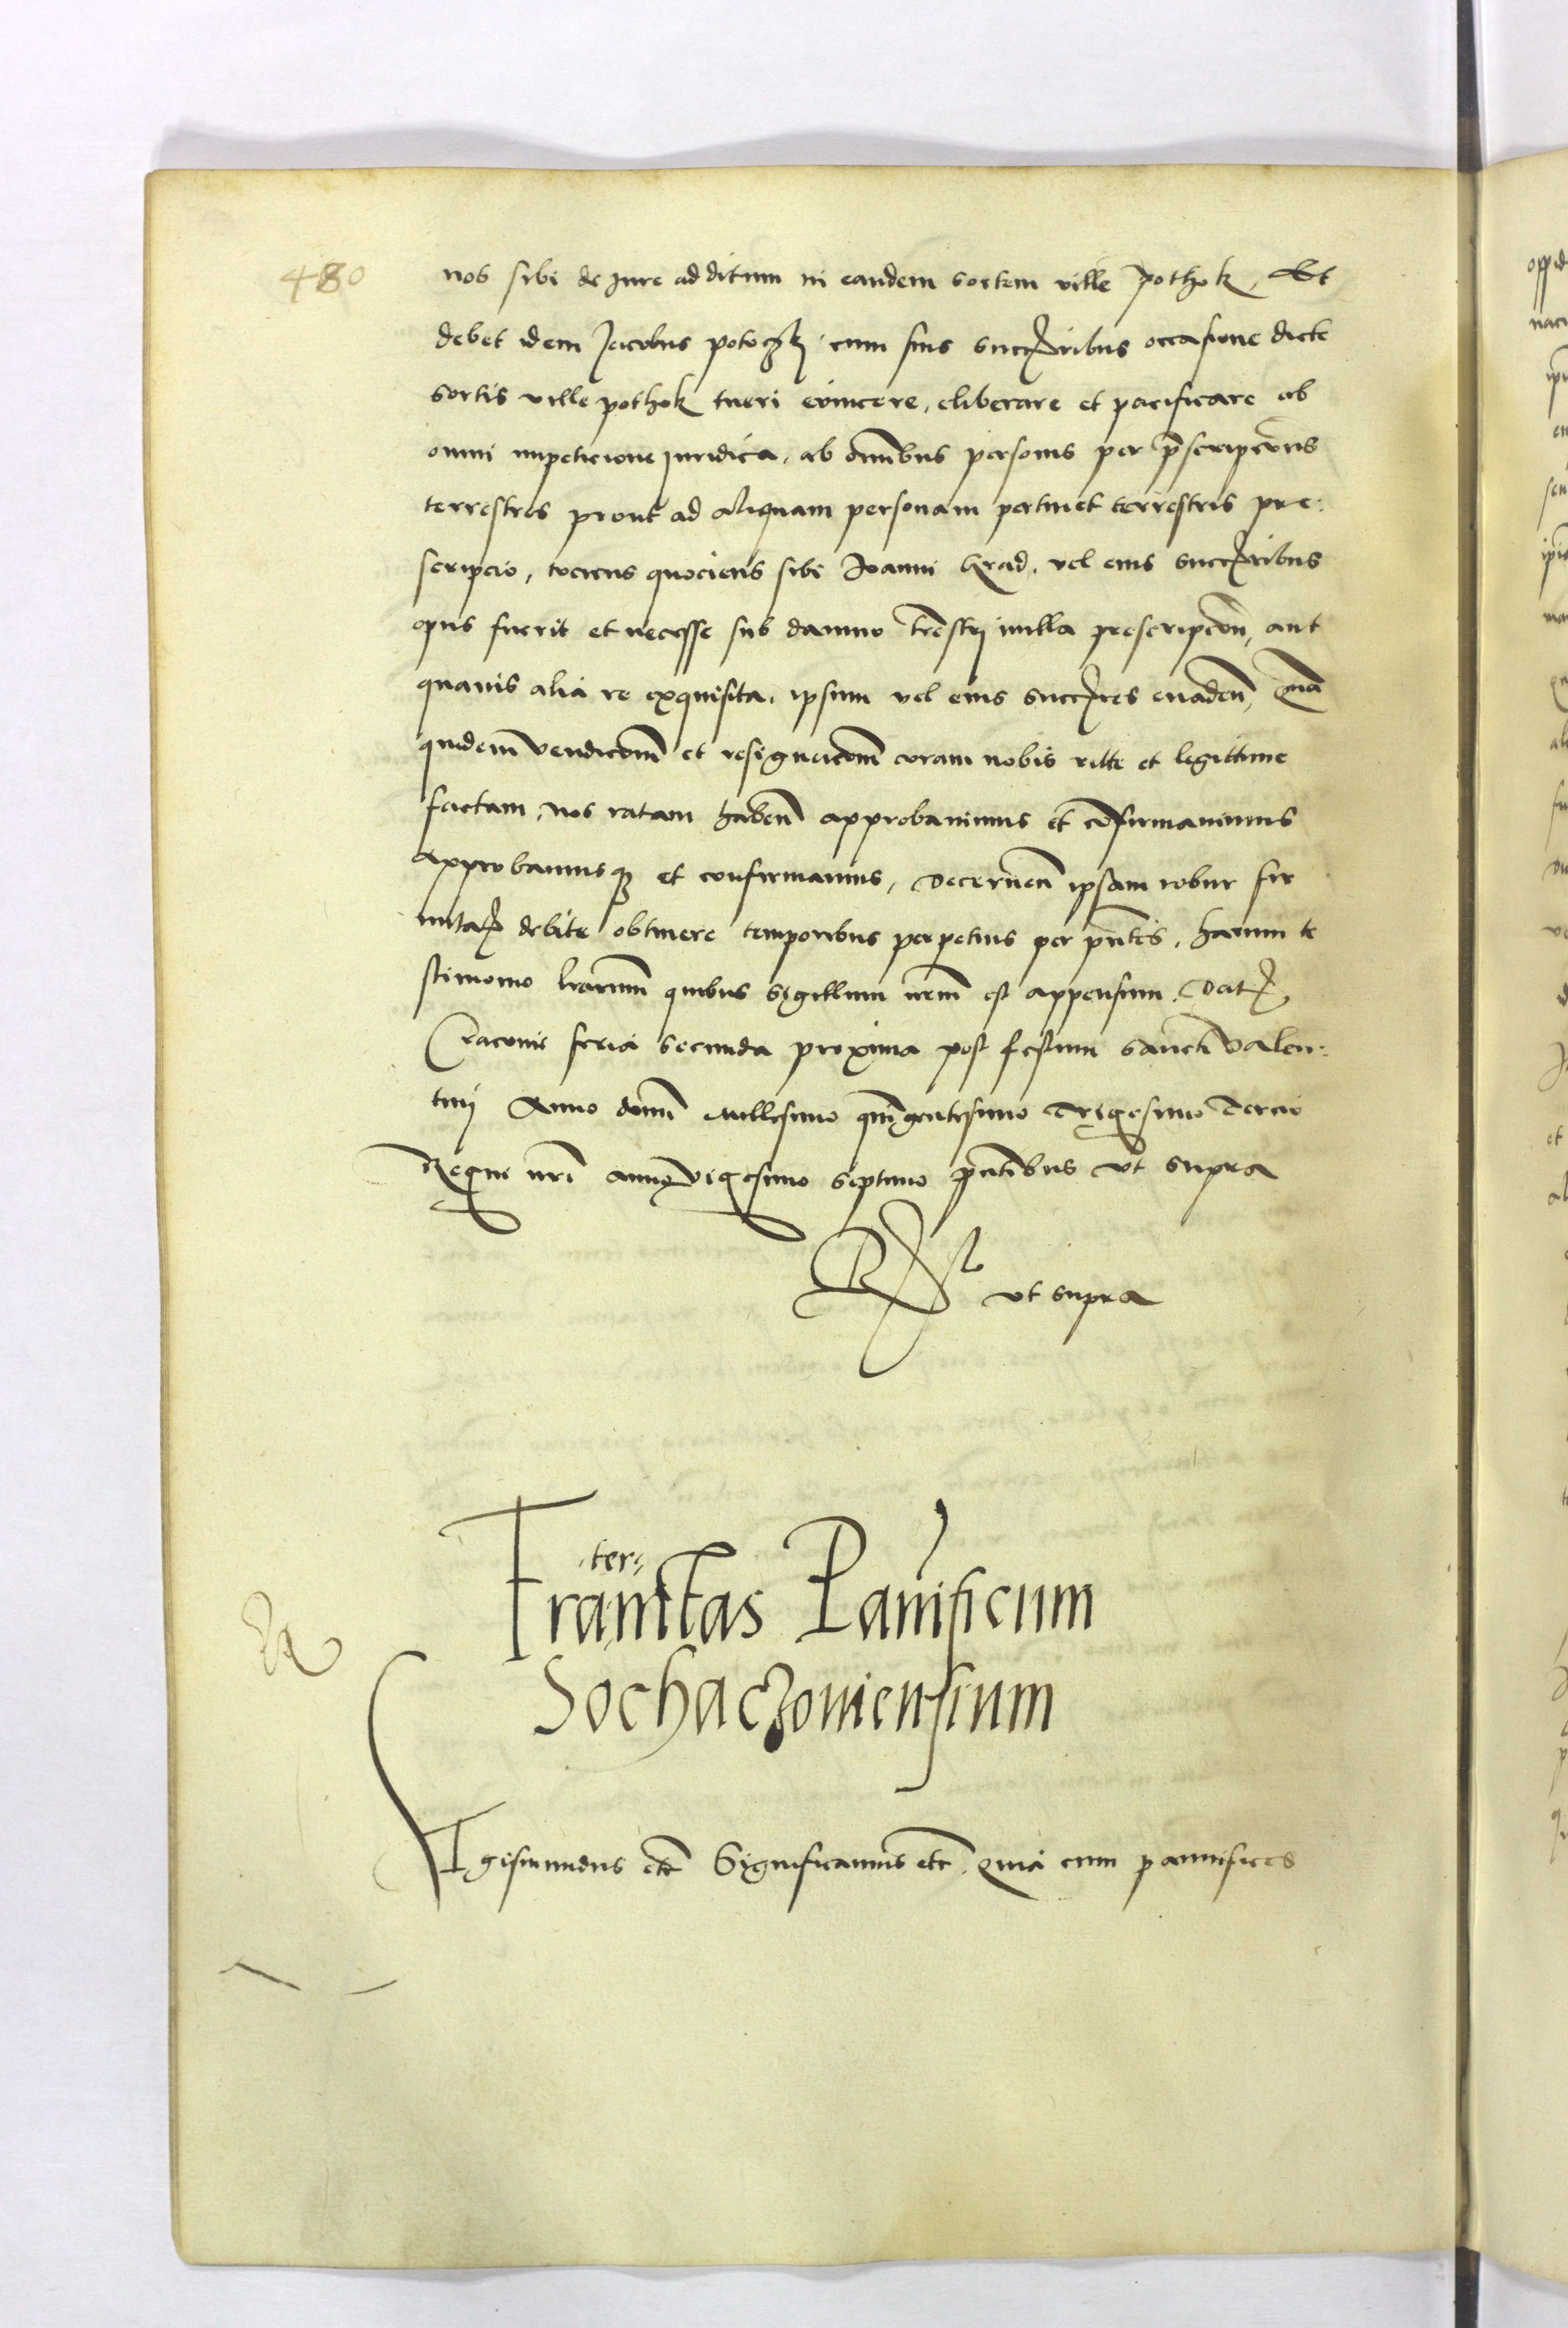 480
nos sibi de Jure additum in eandem sortem ville Pothok, Et
debet idem Jacobus potoczki cum suis succribus occasione dicte
sortis ville pothok tueri evincere, eliberare et pacificare ab
omni impeticione Juridica, ab omnibus personis per prescripcones
terrestres prout ad aliquam personam pertinet terrestris pre:
scripcio, tociens quociens sibi Joanni Grad, vel eius succribus
opus fuerit et necesse sub damno trestri nulla prescripcon, aut
quavis alia re exquisita, ipsum vel eius succres evaden, Qua
quidem vendicom et resignacom coram nobis ritte et legittime
factam, nos ratam haben approbavimus et confirmavimus
Approbamusq et confirmamus, decernen ipsam robur fir
mitat debite obtinere temporibus perpetuis per pntes, harum te
stimonio lrarum quibus Sigillum nrum est appensum, Dat
Cracovie feria secunda proxima post festum sancti Valen:
tini Anno domi millesimo quingentesimo Trigesimo Tercio
Regni nri anno Vigesimo septimo pntibus vt supra
Rlo vt supra
ter
Franitas Panificum
Sochaczoviensium
Igismundus etc Significamus etc, Quia cum pannifices